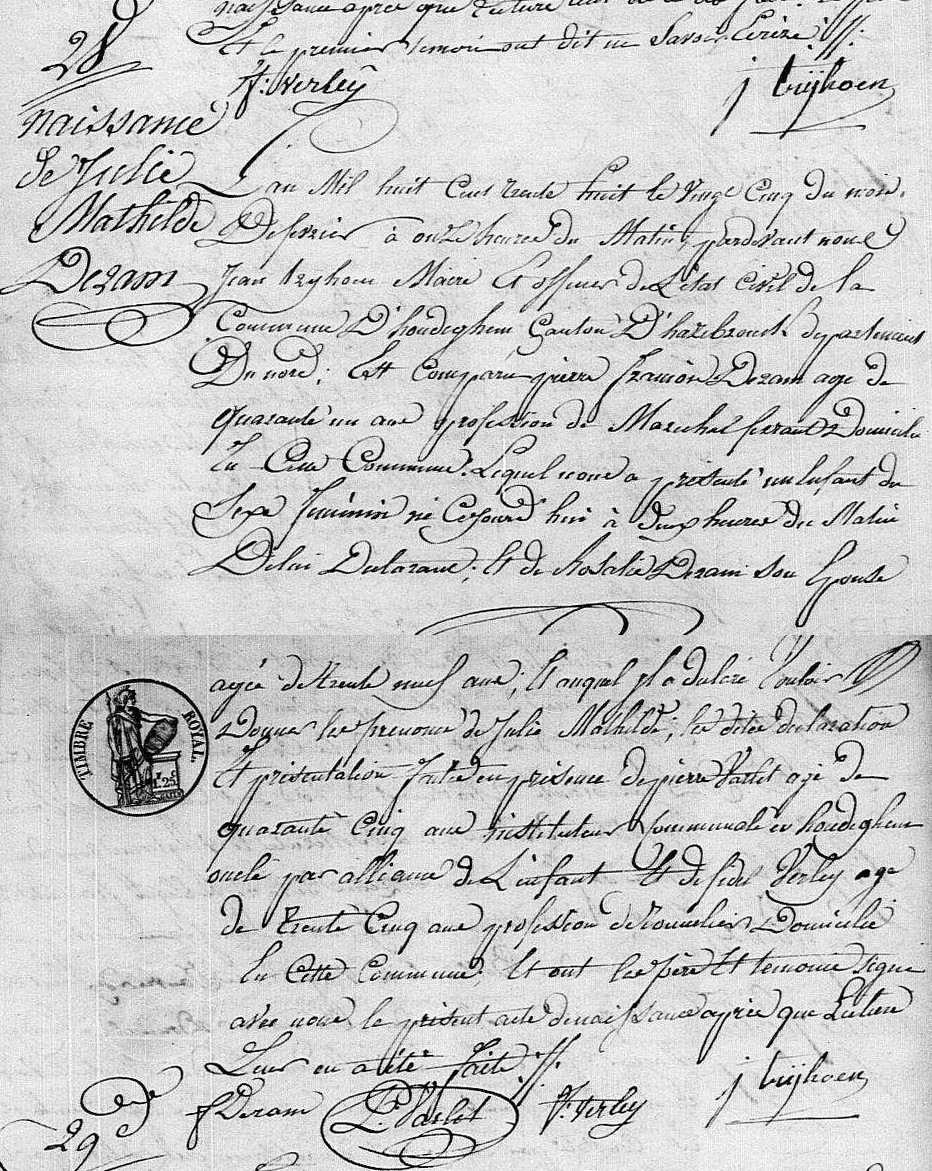 naissance après que lecture leur
Et le premier temoin ont dit ne Savoir Ecrire
28
f: verley
j tryhoen
naissance
de Julie
Mathilde
Dezam
L'an Mil huit Cent Trente huit le Vingt Cinq du mois
De fevrier à onze heures du Matin, pardevant nous
Jean tryhoen Maire Et officier de L'état Civil de la
Commune D'hondeghem Canton D'hazebrouck departement
Du nord; Est Comparu pierre Dezam age de
quarante un ans profession de Marechal ferrant Domicilie
En Cette Commune. Lequel nous a presenté un Enfant du
Sexe feminin né Cejourd'hui à deux heures du Matin
De lui Declarant; Et de Rosalie Dezam son Epouse
agée de trente neuf ans; Et auquel il a declaré Vouloir
Donner les prenoms de Julie Mathilde; les dites declaration
Et presentation faites en presence de pierre Varlet agé de
quarante Cinq ans instituteur Communale en hondeghem
oncle par alliance de L'enfant Et de fidel Verley age
de trente Cinq ans profession de Domicilie
En Cette Commune; Et ont les père Et temoins signe
avec nous le present acte de naissance après que Lecture
Leur en a été faite
TIMBRE ROYAL
1f 25c
29
f Dezam
P. Varlet
f: verley
j tryhoen